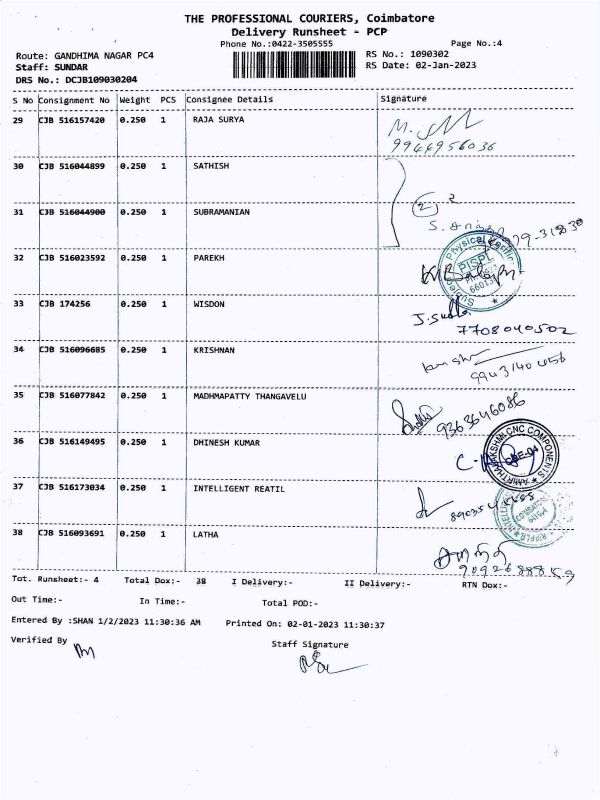 THE PROFESSIONAL COURIERS, Coimbatore
Delivery Runsheet - PCP
Phone No.:0422-3505555
Page No.:4
Route: GANDHIMA NAGAR PC4
RS No.: 1090302
Staff: SUNDAR
RS Date: 02-Jan-2023
DRS No.: DCJB109030204
S No Consignment No Weight PCS Consignee Details Signature
29 CJB 516157420 0.250 1 RAJA SURYA
9944956036
30 CJB 516044899 0.250 1 SATHISH
31 CJB 516044900 0.250 1 SUBRAMANIAN
32 CJB 516023592 0.250 1 PAREKH
PISPL
33 CJB 174256 0.250 1 WISDON
J.sudha
7708040502
34 CJB 516096685 0.250 1 KRISHNAN
35 CJB 516077842 0.250 1 MADHMAPATTY THANGAVELU
9363646086
36 CJB 516149495 0.250 1 DHINESH KUMAR
CBE-04
37 CJB 516173034 0.250 1 INTELLIGENT REATIL
38 CJB 516093691 0.250 1 LATHA
Tot. Runsheet:- 4 Total Dox:- 38 I Delivery:- II Delivery:- RTN Dox:-
Out Time:- In Time:- Total POD:-
Entered By :SHAN 1/2/2023 11:30:36 AM Printed On: 02-01-2023 11:30:37
Verified By
Staff Signature